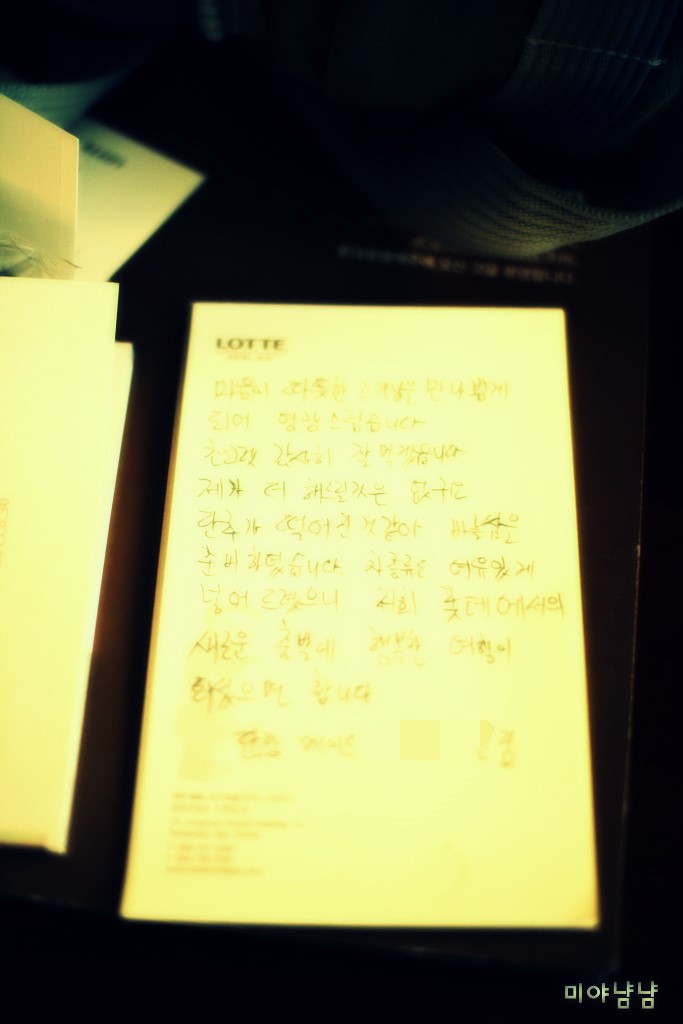 LOTTE
마음이 따뜻한 고객님을 만나뵙게
되어 영광스럽습니다
초콜렛 감사히 잘 먹겠습니다
제가 더 해드릴것은 없구요
단추가 떨어진것같아 바늘쌈을
준비하였습니다 차종류도 여유있게
넣어드렸으니 저희 롯데에서의
새로운 출발에 행복한 여행이
되셨으면 합니다
미야냠냠